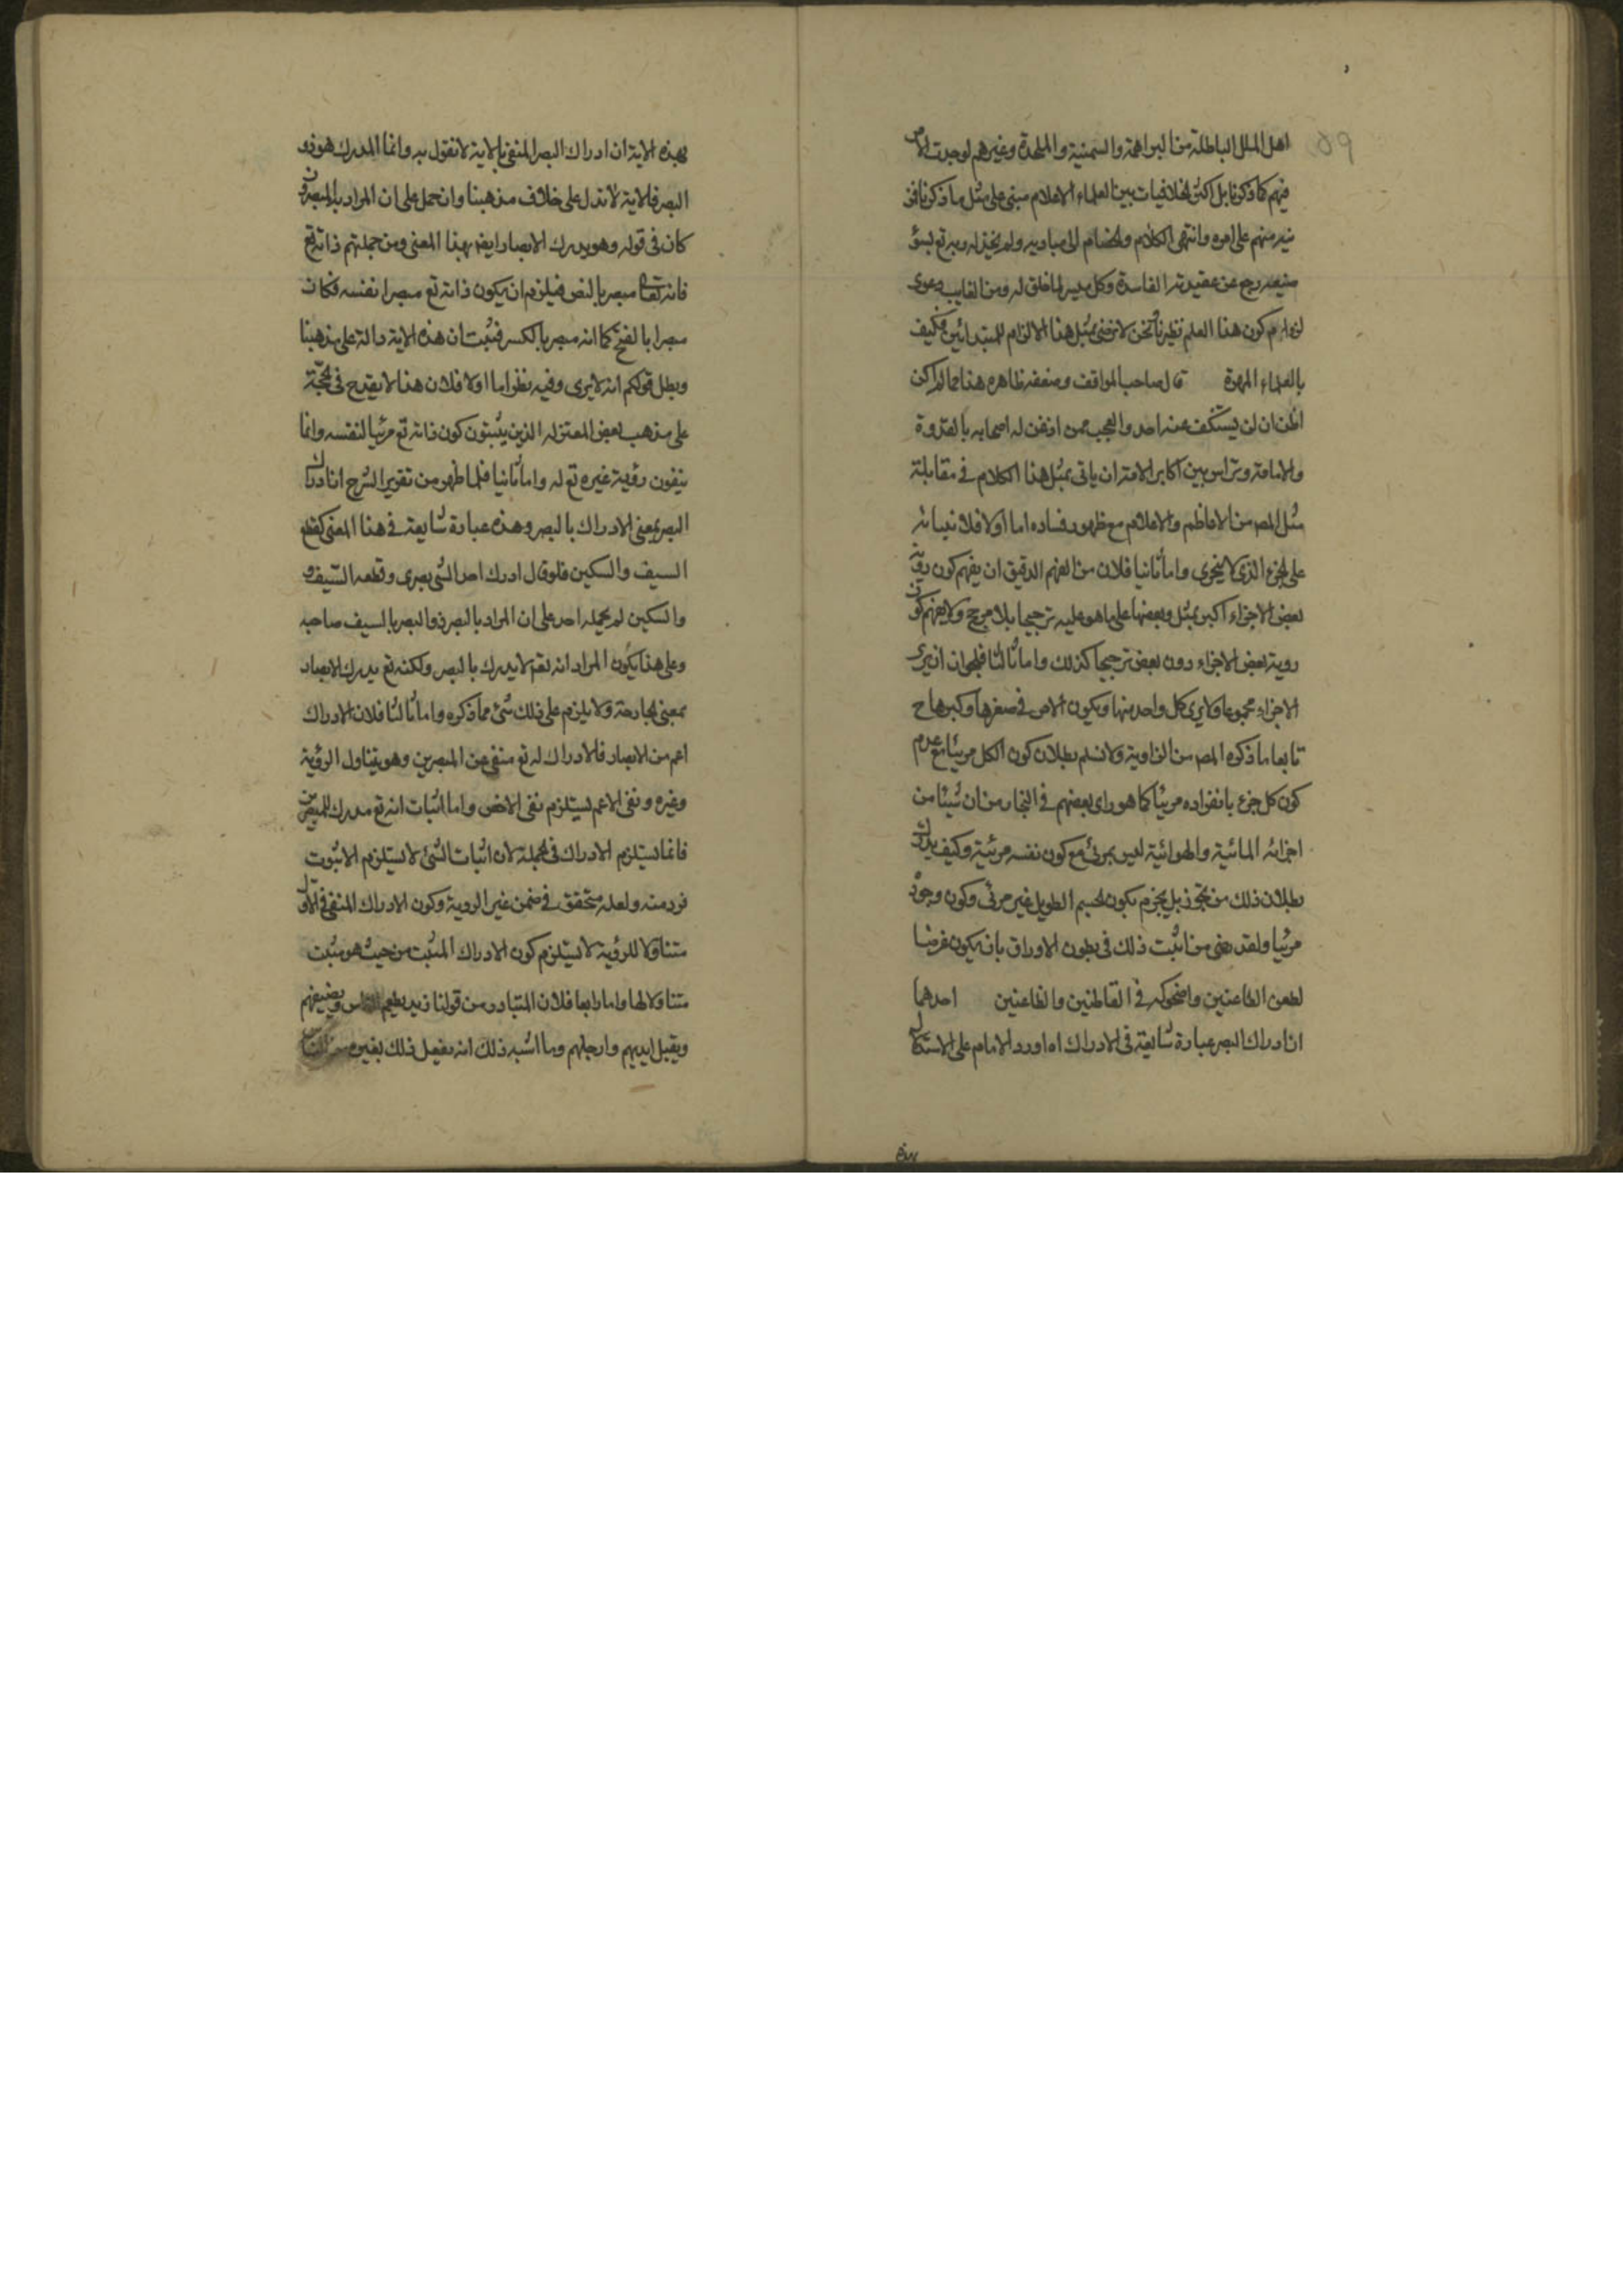 59
اهل الملل الباطلة من البراهمة والسمنية والملحدة وغيرهم لوجدت الامر
فيهم كما ذكرنا بل اكثر الخلافيات بين العلماء الاعلام مبنى على مثل ما ذكرنا
منهم على امره وانتهى الكلام والخصام الى مباديه ولم
رجع عن عقيدته الفاسدة وكل ميسر لما خلق له ومن الغايب دعوى
كون هذا العلم نظريا نحن لا نرضى بمثل هذا الالزام للمبتدائين فكيف
بالعلماء المهرة قال صاحب المواقف وضعفه ظاهر هذا مما لم اكن
اظن ان لن يستنكف عنه احد والعجب ممن اذعن له اصحابه بالقدوة
والامامة وتراس بين اكابر الامة ان ياتى بمثل هذا الكلام فى مقابلة
مثل المص من الاعاظم والاعلام مع ظهور فساده اما اولا فلابتنائه
على الجزء الذى لا يتجزى واما ثانيا فلان من الفهم الدقيق ان يفهم كون رؤية
بعض الاجزاء اكبر بمثل وبعضها على ما هو عليه ترجيحا بلا مرجح ولا يفهم كون
روية بعض الاجزاء دون بعض ترجيحا كذلك واما ثالثا فلجواز ان يرى
الاجزاء مجموعا ولا يرى كل واحد منها ويكون الامر فى صغرها وكبرها ح
تابعا ما ذكره المص من الزاوية ولا نسلم بطلان كون الكل مرئيا مع عدم
كون كل جزء بانفراده مرئيا كما هو راى بعضهم فى البخار من ان شيئا من
اجزائه المائية والهوائية ليس بمرئى مع كون نفسه مرئية وكيف يدرك
بطلان ذلك من بل يجزم بكون الجسم الطويل غير مرئى وكون وجوده
مرئيا ولقد من اثبت ذلك فى بطون الاوراق بان يكون غرضا
لطعن الطاعنين واضحوكة فى القاطنين والظاعنين احدهما
ان ادراك البصر عبارة شايعة فى الادراك اه اورد الامام على الاستدلال
بهذه الاية ان ادراك البصر المنفى بالاية لا نقول به وانما المدرك هو ذو
البصر فالاية لا تدل على خلاف مذهبنا وان حمل على ان المراد بالمبصرون
كان فى قوله وهو يدرك الابصار ايضا بهذا المعنى ومن جملتهم ذاته تع
فانه تعالى مبصر بالنص فيلزم ان يكون ذاته تع مبصرا نفسه فكان
مبصرا بالفتح كما انه مبصر بالكسر فثبت ان هذه الاية دالة على مذهبنا
وبطل قولكم انه لا يرى وفيه نظر اما اولا فلان هذا لا يقدح فى الحجة
على مذهب بعض المعتزله الذين يثبتون كون ذاته تع مرئيا لنفسه وانما
ينفون رؤية غيره تع له واما ثانيا فلما ظهر من تقرير الشرح ان ادراك
البصر بمعنى الادراك بالبصر وهذه عبارة شايعة فى هذا المعنى كقطع
السيف والسكين فلو قال ادرك احد الشئ بصرى وقطعه السيف و
والسكين لم يحمله احد على ان المراد بالبصر ذو البصر بالسيف صاحبه
وعلى هذا يكون المراد انه تع لا يدرك بالبصر ولكنه تع يدرك الابصار
بمعنى الجارحة ولا يلزم على ذلك شئ مما ذكره واما ثالثا فلان الادراك
اعم من الابصار فالادراك له تع منفى عن المبصرين وهو يتناول الرؤية
وغيره ونفى الاعم يستلزم نفى الاخص واما اثبات انه تع مدرك للمبصرين
فانما يستلزم الادراك فى الجملة لان اثبات الشئ لا يستلزم الا ثبوت
فرد منه ولعله متحقق فى ضمن غير الروية وكون الادراك المنفى فى الاول
متناولا للرؤية لا يستلزم كون الادراك المثبت من حيث هو مثبت
متناولا لها واما رابعا فلان المتبادر من قولنا زيد يطعم الناس ويضيفهم
ويقبل ايديهم وارجلهم وما اشبه ذلك انه يفعل ذلك بغيره